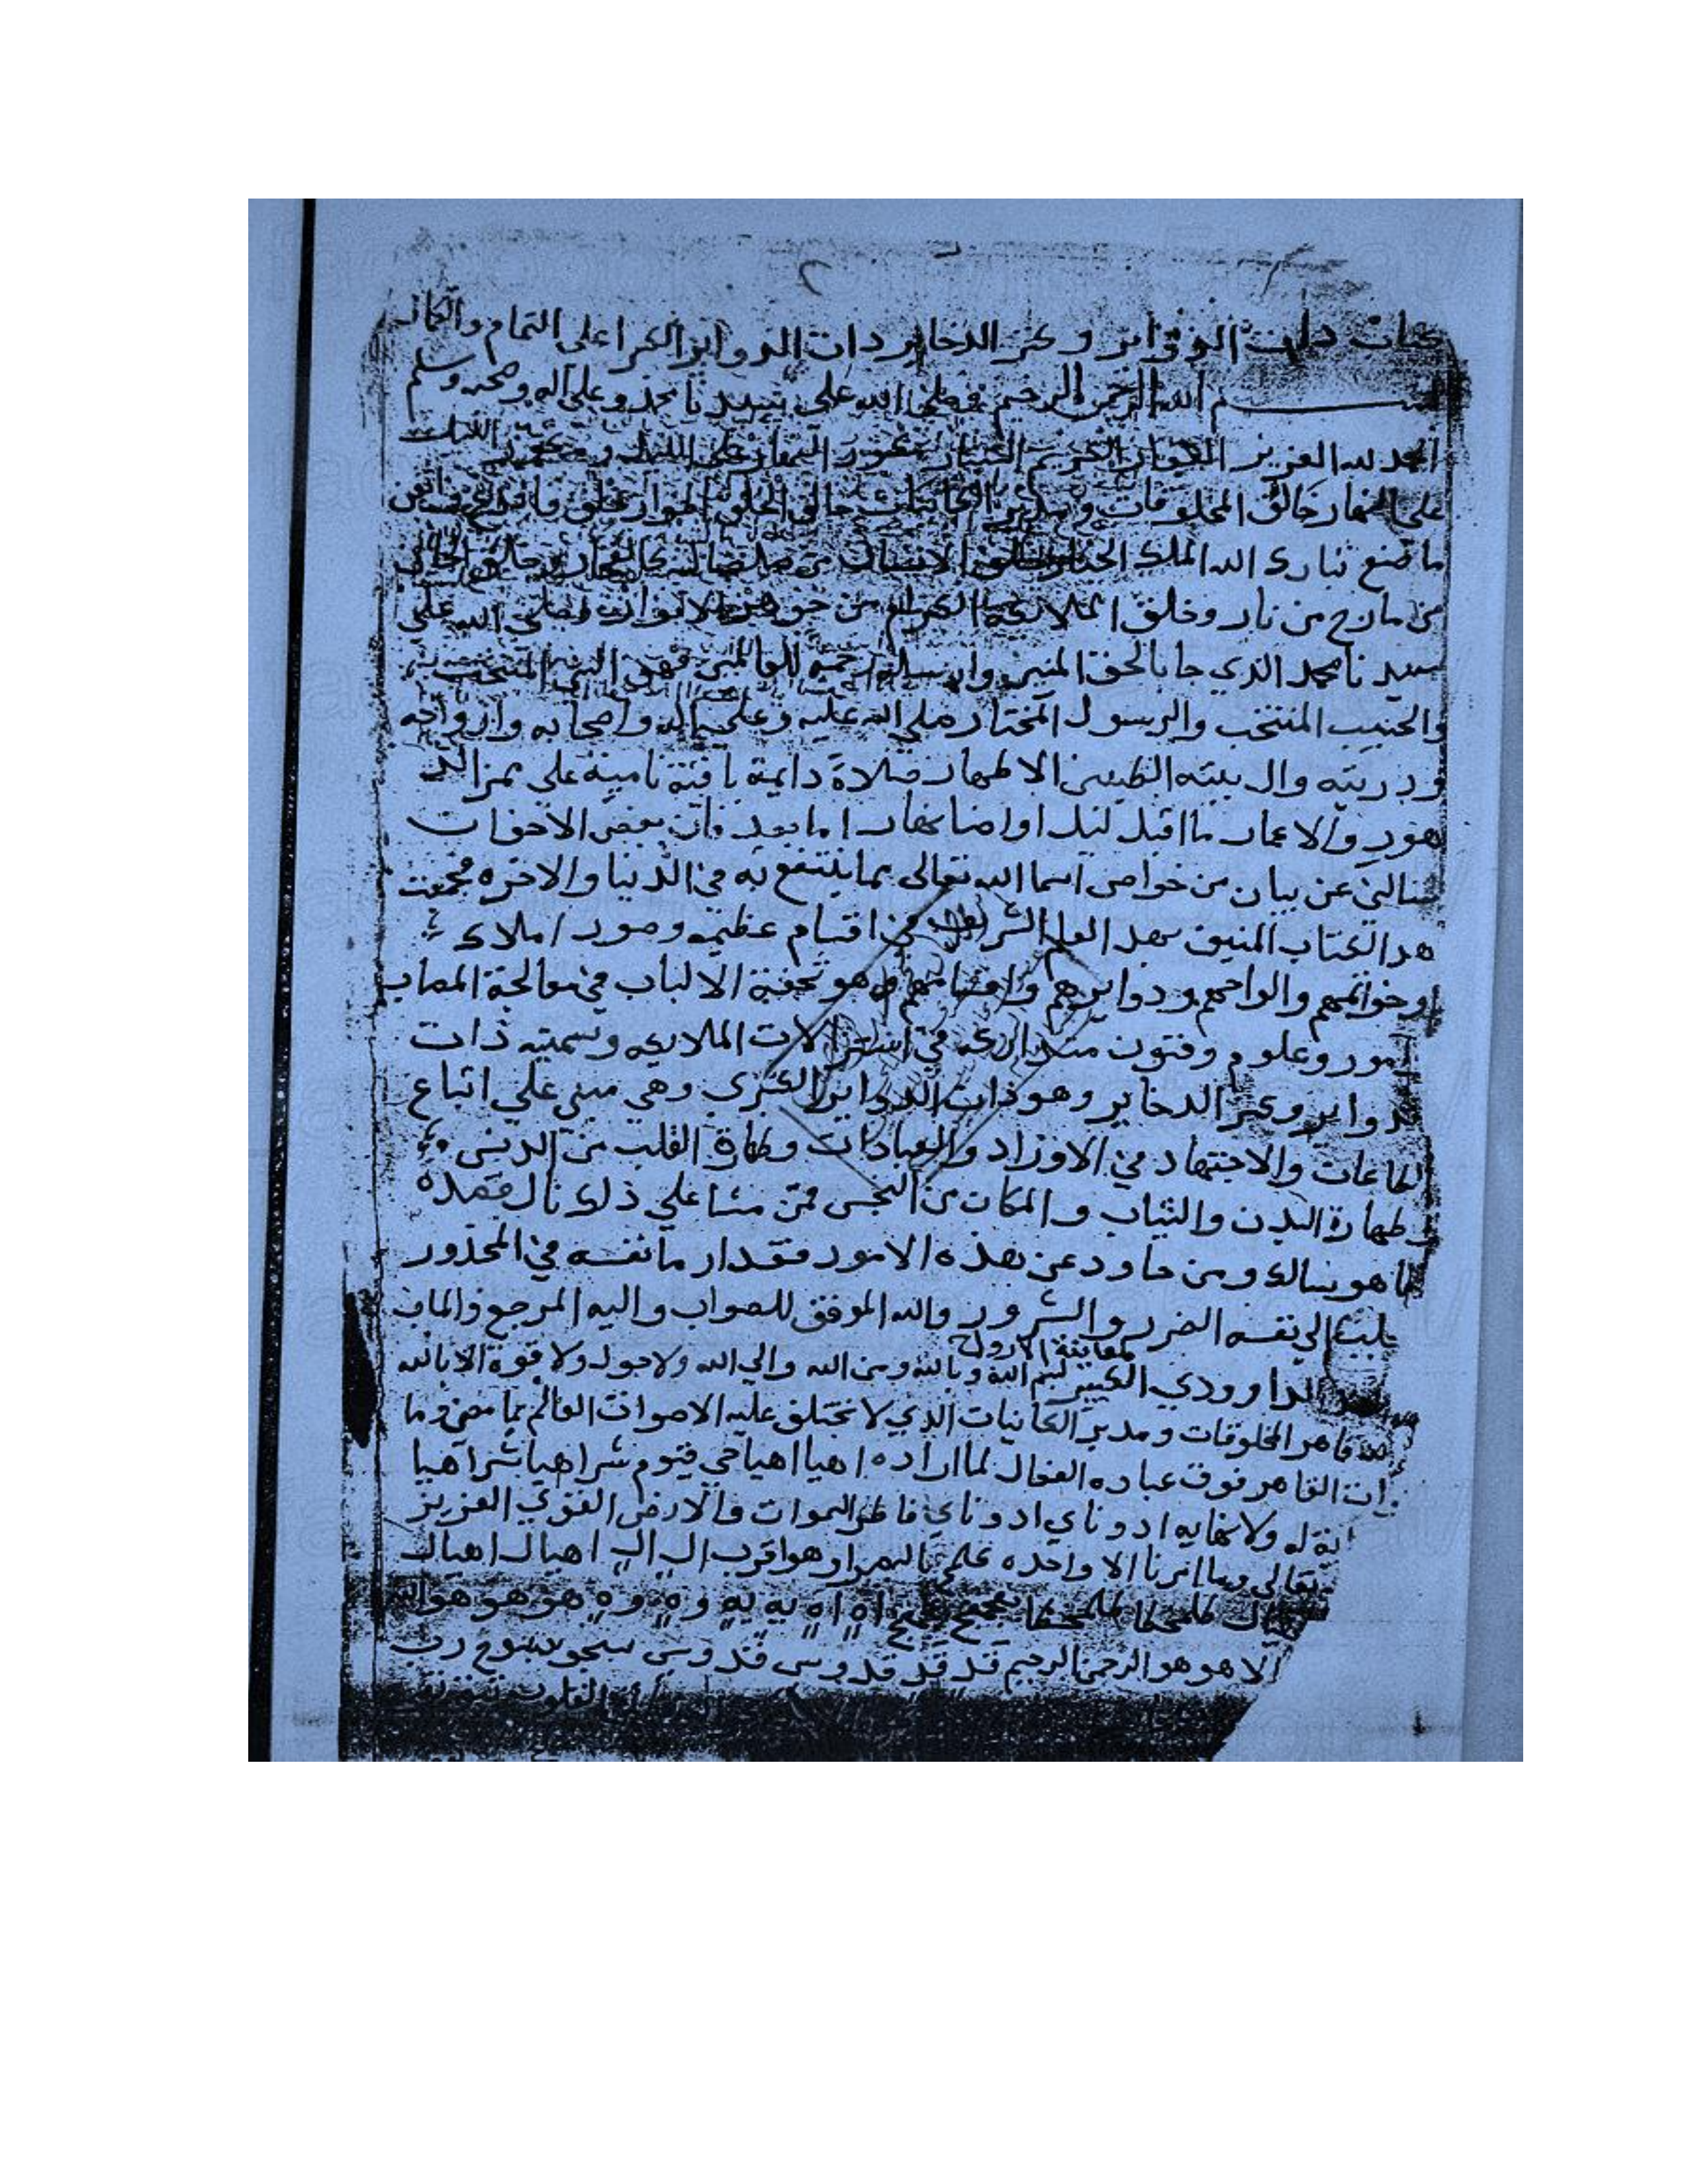 كتاب ذات الدواير وكنز الدخاير ذات الدواير الكبرا على التمام والكمال
بسم الله الرحمن الرحيم وصلى الله على سيدنا محمد وعلى اله وصحبه وسلم
الحمد لله العزيز الكريم مكور النهار على الليل ومكور الليل
على النهار خالق المخلوقات ومدبر الكاينات خالق الخلق
ما صنع تبارك الله الملك خلق الانسان من صلصال كالفخار وخلق الجان
من مارج من نار وخلق الملايكة الكرام من جوهر الانوار وصلى الله على
سيدنا محمد الذي جا بالحق المبين وارسله رحمة للعالمين فهو النبي
والحبيب المنتخب والرسول المختار صلى الله عليه وعلى اله واصحابه وازواجه
ودريته وال بيته الطيبين الاطهار صلاة دايمة باقية نامية على ممر
هور والاعمار ما اقبل ليل او اضا نهار اما بعد فان بعض الاخوان
سالني عن بيان من خواص اسما الله تعالى بما ينتفع به في الدنيا والاخره فجمعت
هدا الكتاب المنيف بهدا العلم الشريف في اقسام عظيمه وصور املاك
وخواتمهم والواحهم ودوايرهم واقسامهم وهو تحفة الالباب في معالجة المصاب
امور وعلوم وفنون متداركه في استنزالات الملايكه وسميته ذات
لدواير وكنز الدخاير وهو ذات الدواير الكبرى وهي مبني على اتباع
الطاعات والاجتهاد في الاوراد والعبادات وطهارة القلب من الدنس
وطهارة البدن والثياب والمكان من النجس فمن مشا على ذلك نال قصده
ما هو سالك ومن حاود عن هذه الامور فقد ار ما نفسه في المحذور
جلبت الى نفسه الضرر والشرور والله الموفق للصواب واليه المرجع والماب
لمعاينة الارواح
الداوودي الكبير بسم الله وبالله ومن الله والى الله ولا حول ولا قوة الا بالله
الله قاهر المخلوقات ومدبر الكاينات الذي لا تختلف عليه الاصوات العالم بما مضى وما
ات القاهر فوق عباده الفعال لما اراده اهيا اهيا حي قيوم شراهيا شراهيا
اية له ولا نهايه ادوناي ادوناي فاطر السموات والارض القوي العزيز
تعالى وما امرنا الا واحده كلمح بالبصر او هو اقرب ال ال ال اهيال اهيال
اه اه اه يه يه يه وه وه هو هو هو الله
الا هو هو الرحمن الرحيم قد قد قدوس قدوس سبوح سبوح رب